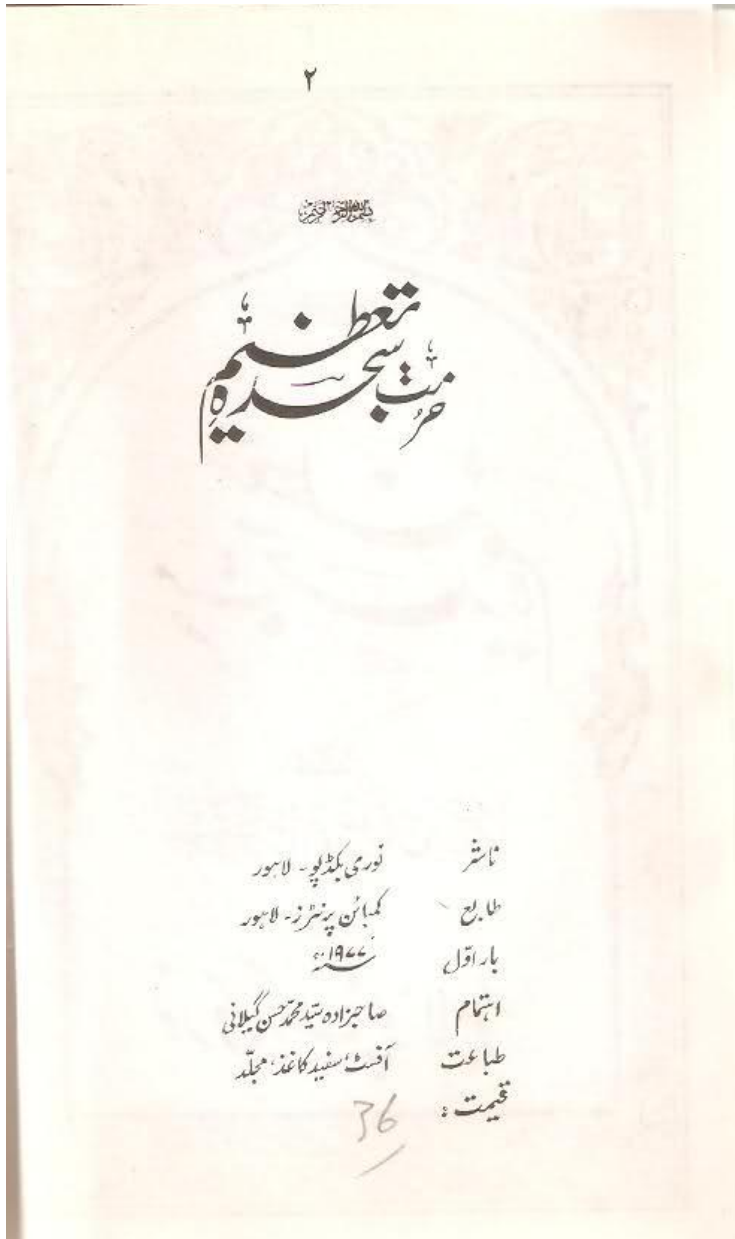 ۲
بسم اللہ الرحمن الرحیم
حرمت سجدہ تعظیم
ناشر نوری بکڈپو - لاہور
طابع کمبائن پرنٹرز - لاہور
بار اوّل ۱۹۷۷ء
اہتمام صاحبزادہ سیّد محمّد حسن گیلانی
طباعت آفسٹ، سفید کاغذ، مجلّد
قیمت : 36